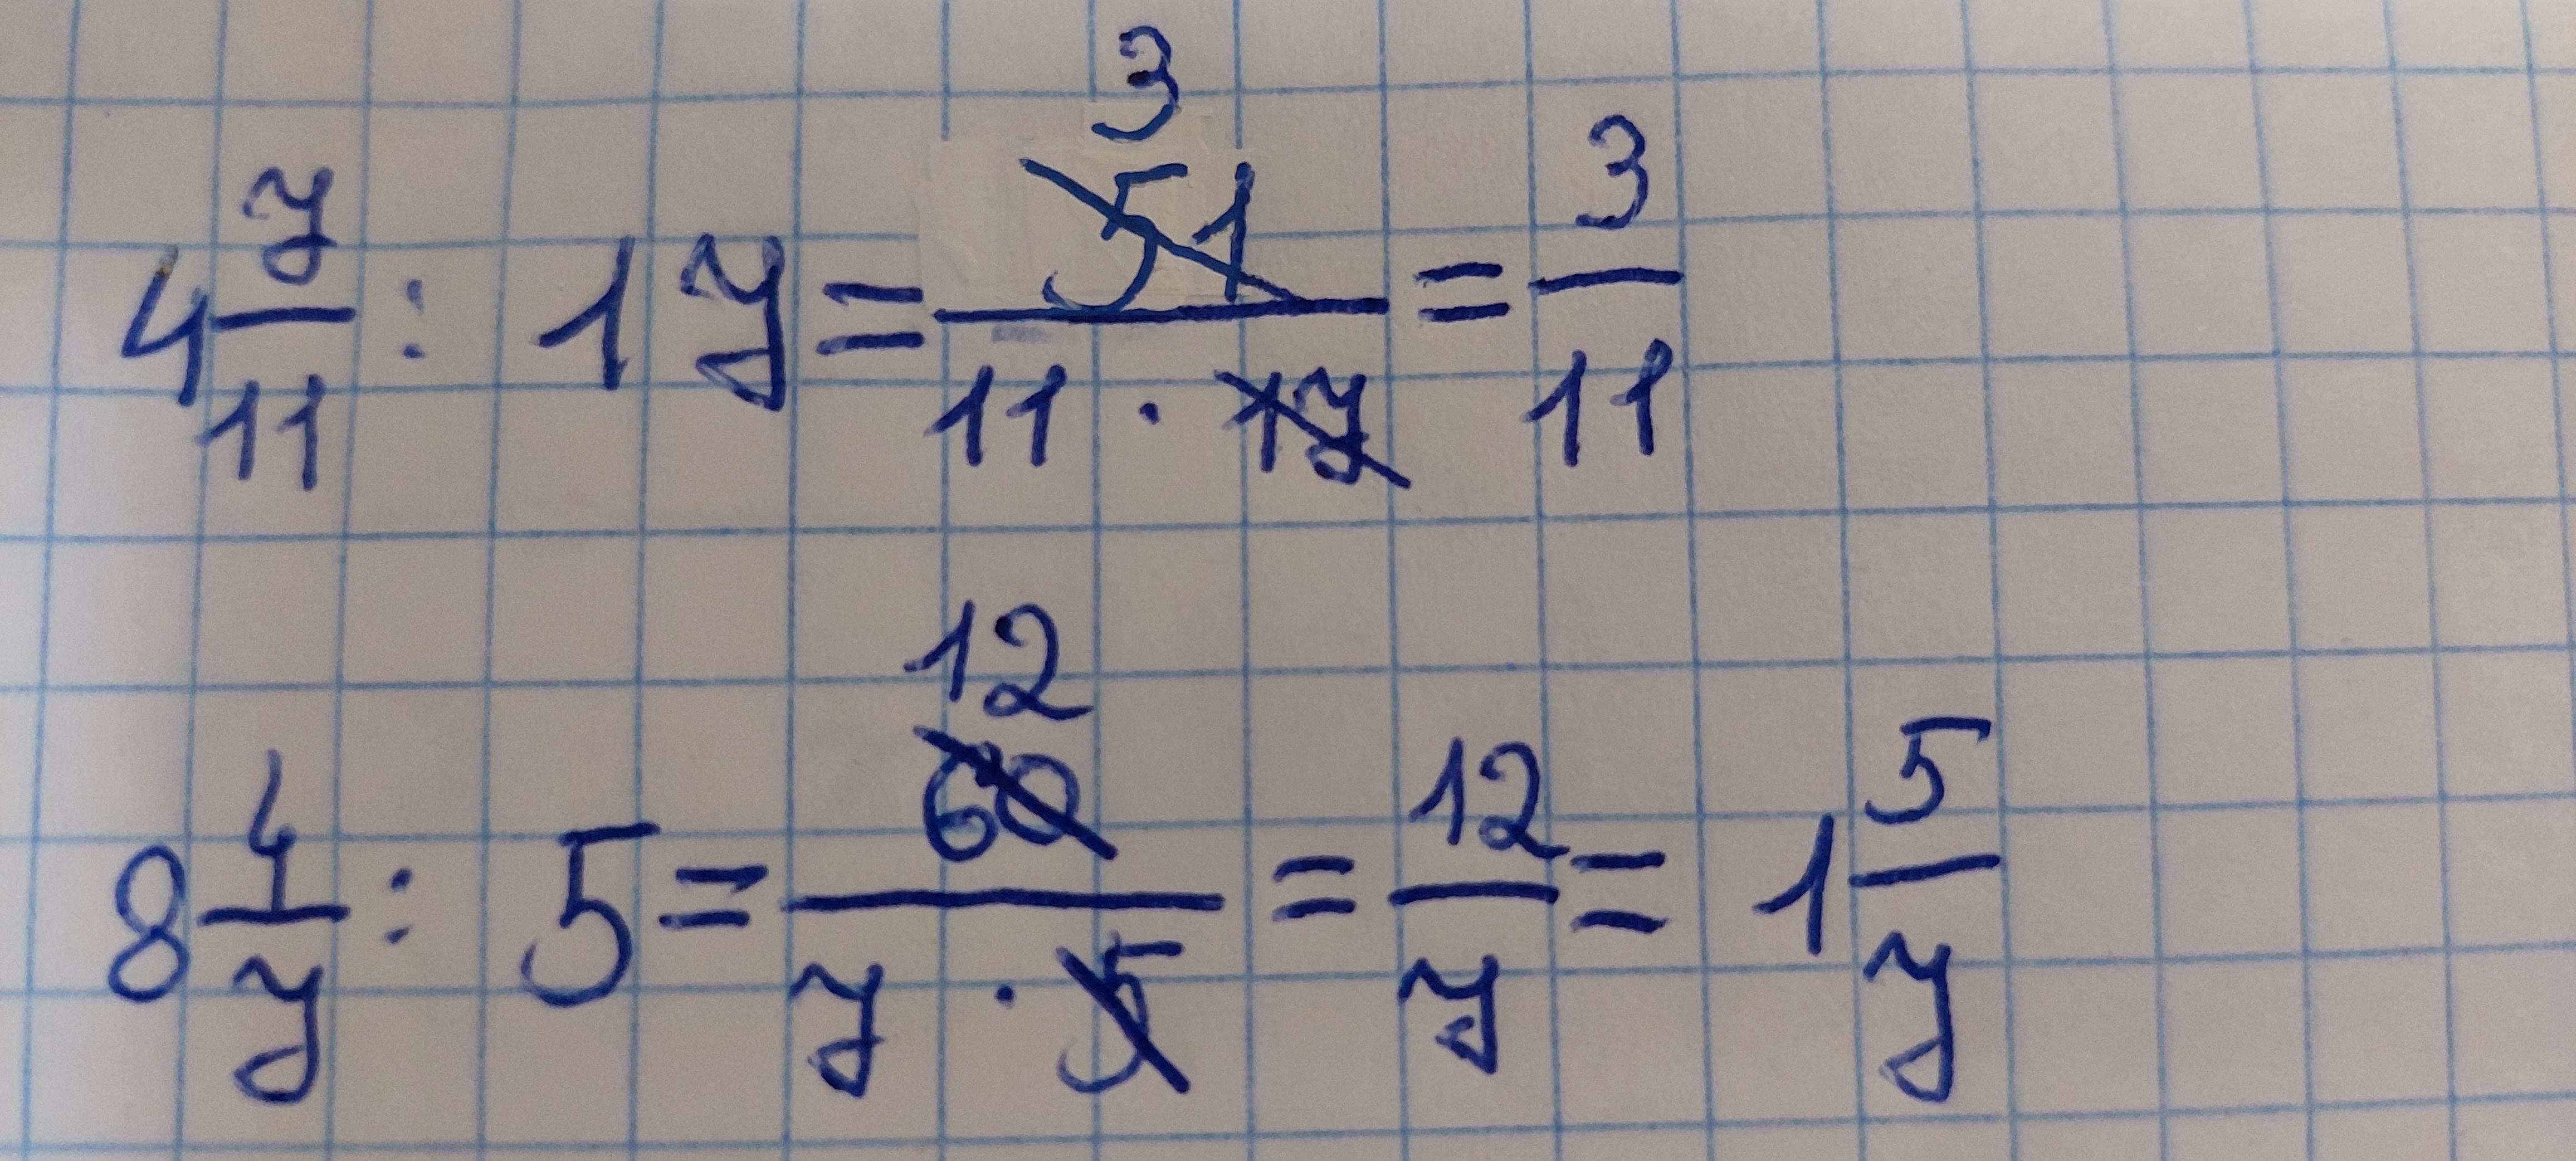 4 7/11 : 17 = 51/(11 · 17) = 3/11
8 4/7 : 5 = 60/(7 · 5) = 12/7 = 1 5/7